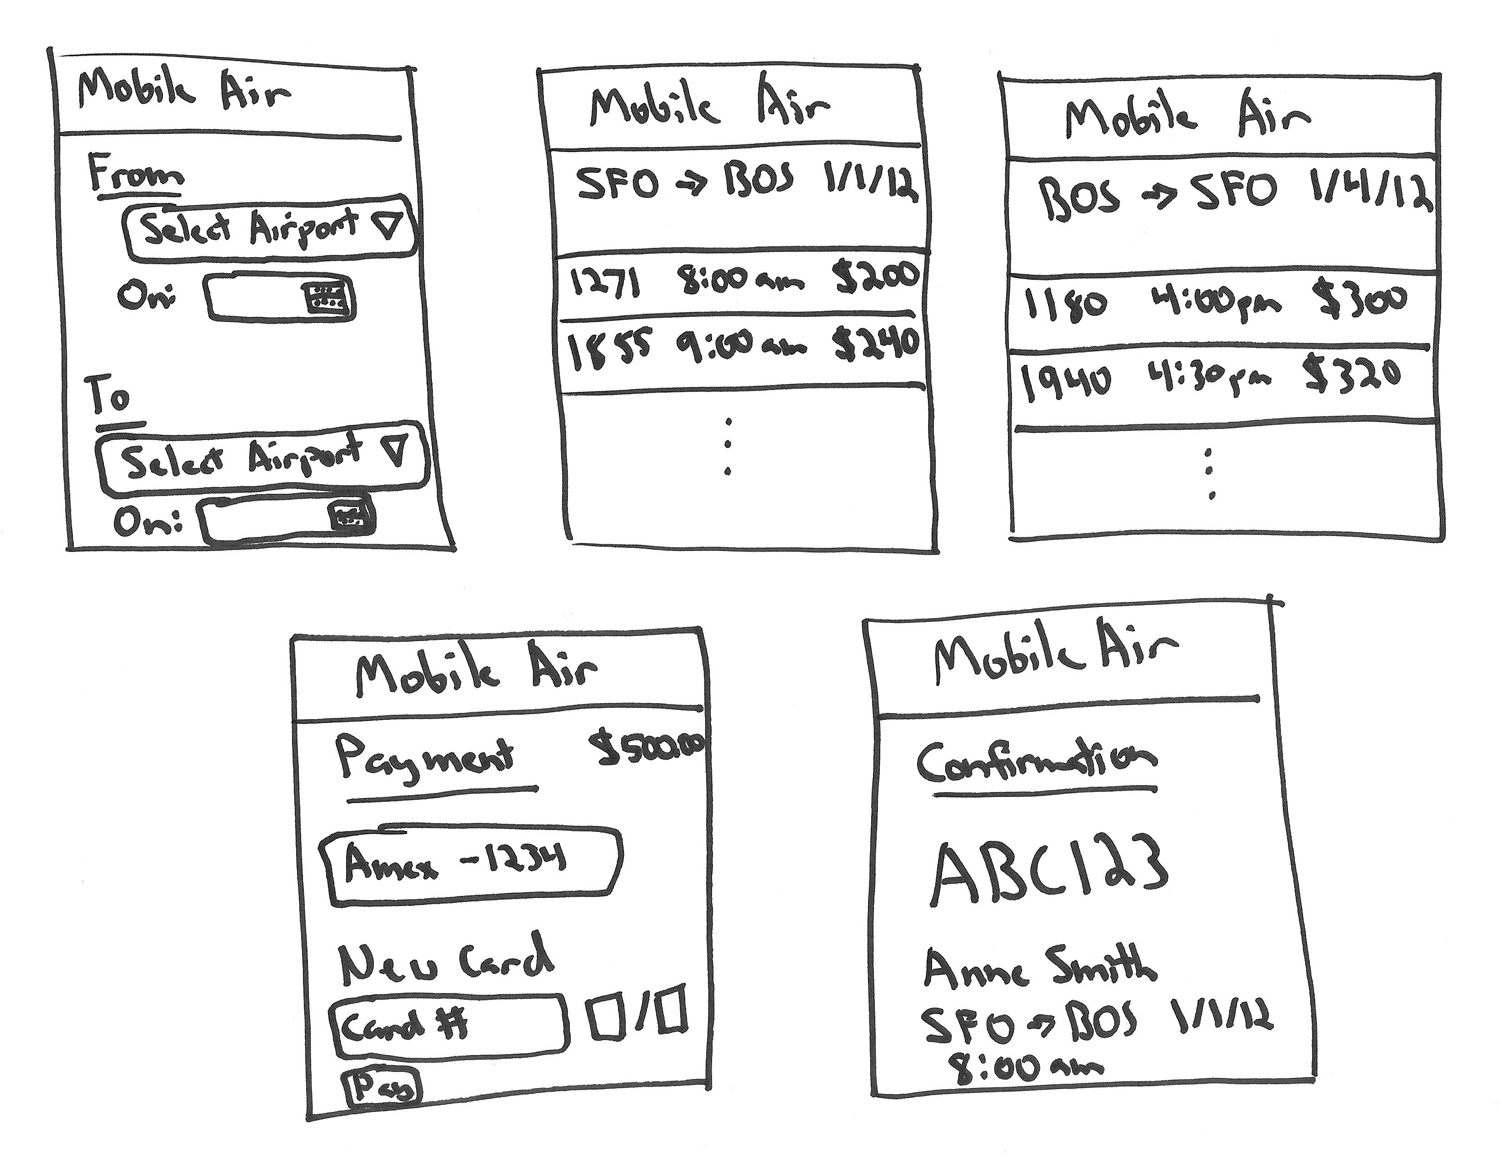 Mobile Air
From
Select Airport
On:
To
Select Airport
On:
Mobile Air
SFO → BOS 1/1/12
1271 8:00am $200
1855 9:00am $240
Mobile Air
BOS → SFO 1/4/12
1180 4:00pm $300
1940 4:30pm $320
Mobile Air
Payment $500.00
Amex -1234
New Card
Card # /
Pay
Mobile Air
Confirmation
ABC123
Anne Smith
SFO → BOS 1/1/12
8:00am